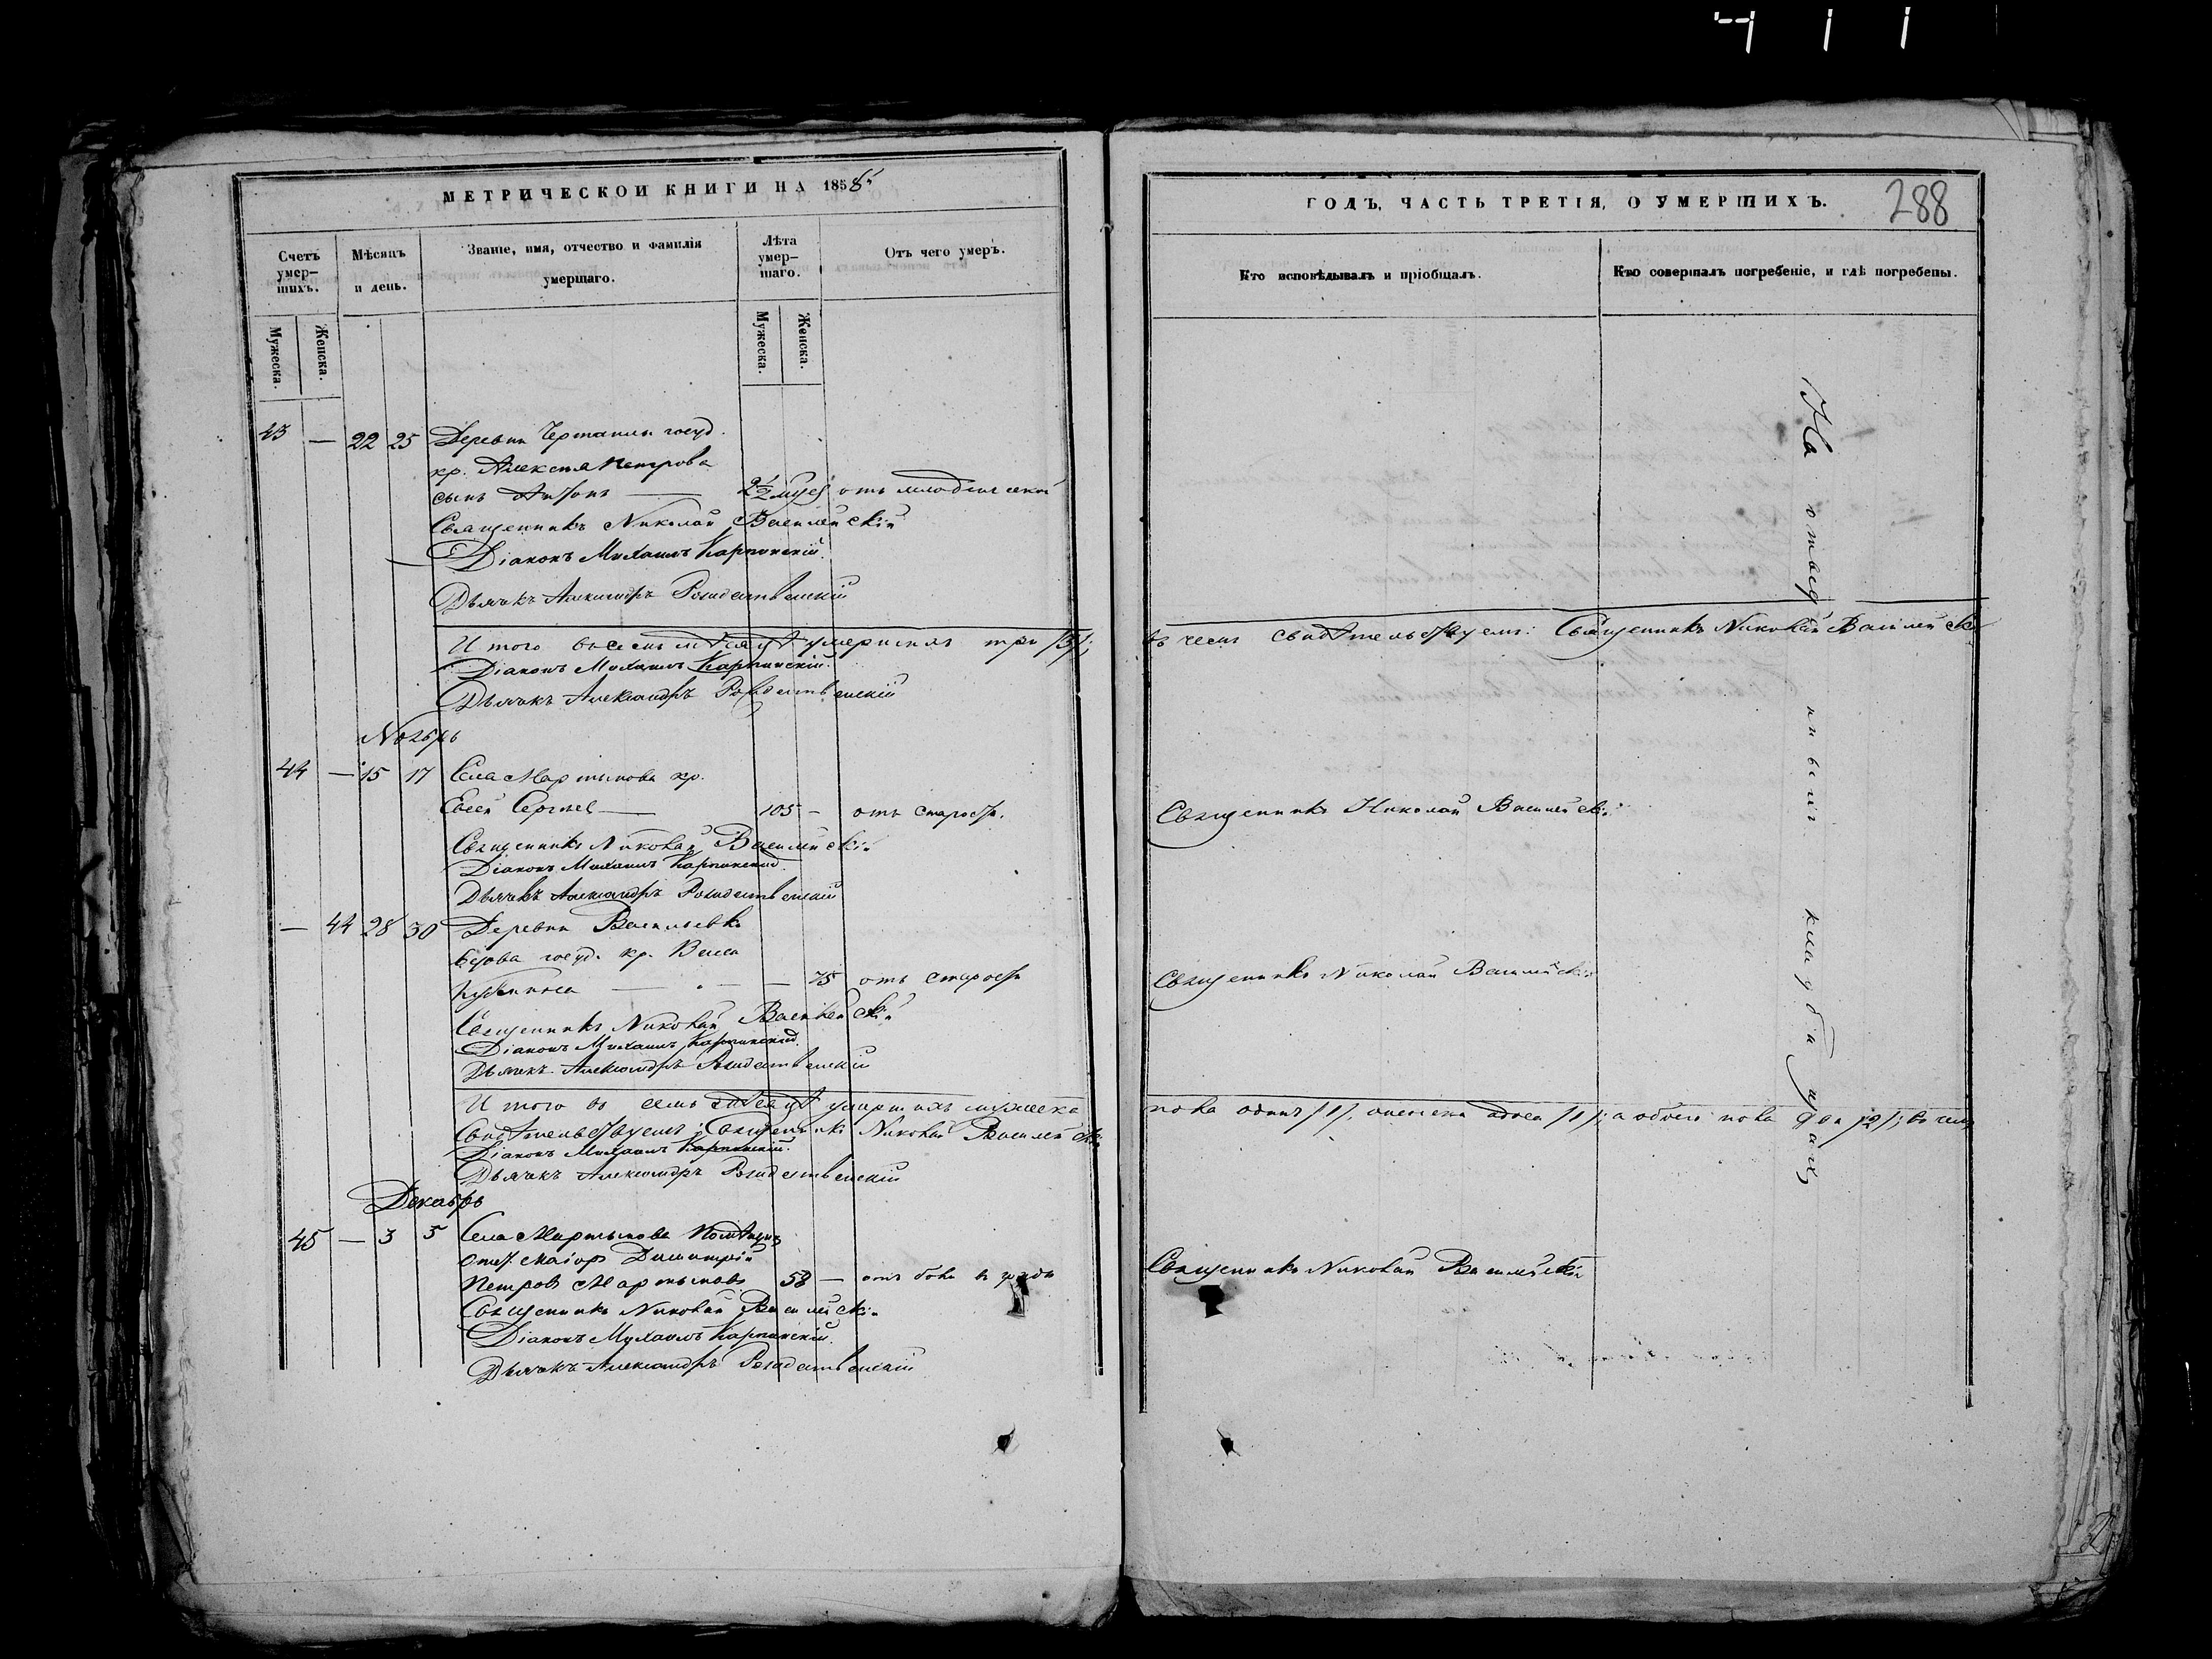 411
МЕТРИЧЕСКОЙ КНИГИ НА 1858
Счетъ умер-шихъ.
Мѣсяцъ и день.
Званіе, имя, отчество и фамилія умершаго.
Лѣта умер-шаго.
Отъ чего умеръ.
Мужеска.
Женска.
Мужеска.
Женска.
43 — 22 25 Деревни госуд.
кр. Алексѣя Петрова
сынъ Антонъ — 2½ отъ младенческой
Священникъ Николай Василейскій
Діаконъ Михаилъ Карпинскій.
Дьячекъ Александръ Рождественскій
И того въ семъ мѣсяцѣ умершихъ три /3/;
Діаконъ Михаилъ Карпинскій.
Дьячекъ Александръ Рождественскій
Ноябрь
44 — 15 17 Села Мартынова кр.
Сергѣевъ — 105 — отъ старости.
Священникъ Николай Василейскій
Діаконъ Михаилъ Карпинскій.
Дьячекъ Александръ Рождественскій
— 44 28 30 Деревни Васильевки
госуд. кр.
— — 75 отъ старости
Священникъ Николай Василейскій
Діаконъ Михаилъ Карпинскій.
Дьячекъ Александръ Рождественскій
И того въ семъ мѣсяцѣ умершихъ мужеска
Свидѣтельствуемъ: Священникъ Николай Василейскій
Діаконъ Михаилъ Карпинскій.
Дьячекъ Александръ Рождественскій
Декабрь
45 — 3 5 Села Мартынова Помѣщикъ
Маіоръ Димитрій
Петровъ Мартыновъ 58 — отъ боли въ груди
Священникъ Николай Василейскій
Діаконъ Михаилъ Карпинскій.
Дьячекъ Александръ Рождественскій
ГОДЪ, ЧАСТЬ ТРЕТІЯ, О УМЕРШИХЪ.
288
Кто исповѣдывалъ и пріобщалъ.
Кто совершалъ погребеніе, и гдѣ погребены.
въ чемъ свидѣтельствуемъ: Священникъ Николай Василейскій
Священникъ Николай Василейскій
Священникъ Николай Василейскій
пола одинъ /1/, женска одна /1/; а обоего пола два /2/; въ чемъ
Священникъ Николай Василейскій
На кладбищахъ